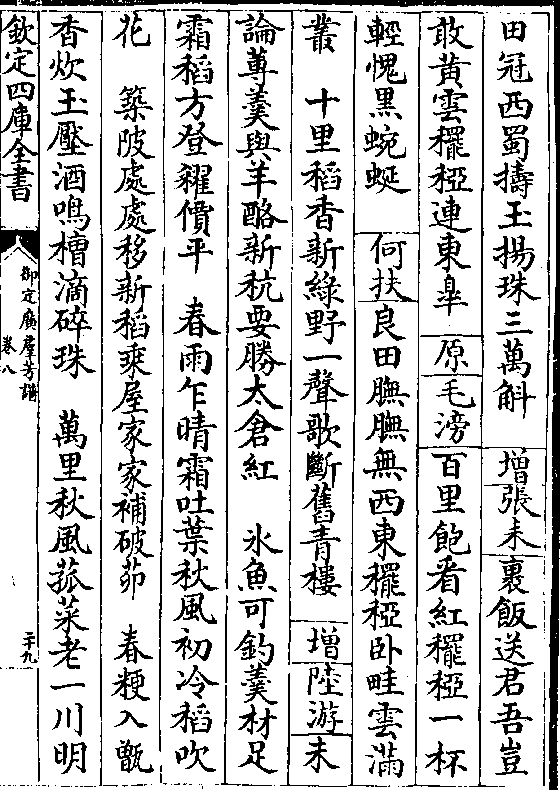 田冠西蜀擣玉揚珠三萬斛　增張耒裹飯送君吾豈
敢黄雲䆉稏連東臯　原毛滂百里飽看紅䆉稏一杯
輕愧黑蜿蜒　何扶良田膴膴無西東䆉稏卧畦雲滿
叢　十里稻香新綠野一聲歌斷舊青樓　增陸游未
論蓴羮與羊酪新秔要勝太倉紅　氷魚可釣羮材足
霜稻方登糴價平　春雨乍晴霜吐葉秋風初冷稻吹
花　築陂處處移新稻乘屋家家補破茆　春粳入甑
香炊玉壓酒鳴槽滴碎珠　萬里秋風菰菜老一川明
欽定四庫全書
御定廣羣芳譜
卷八
二十九